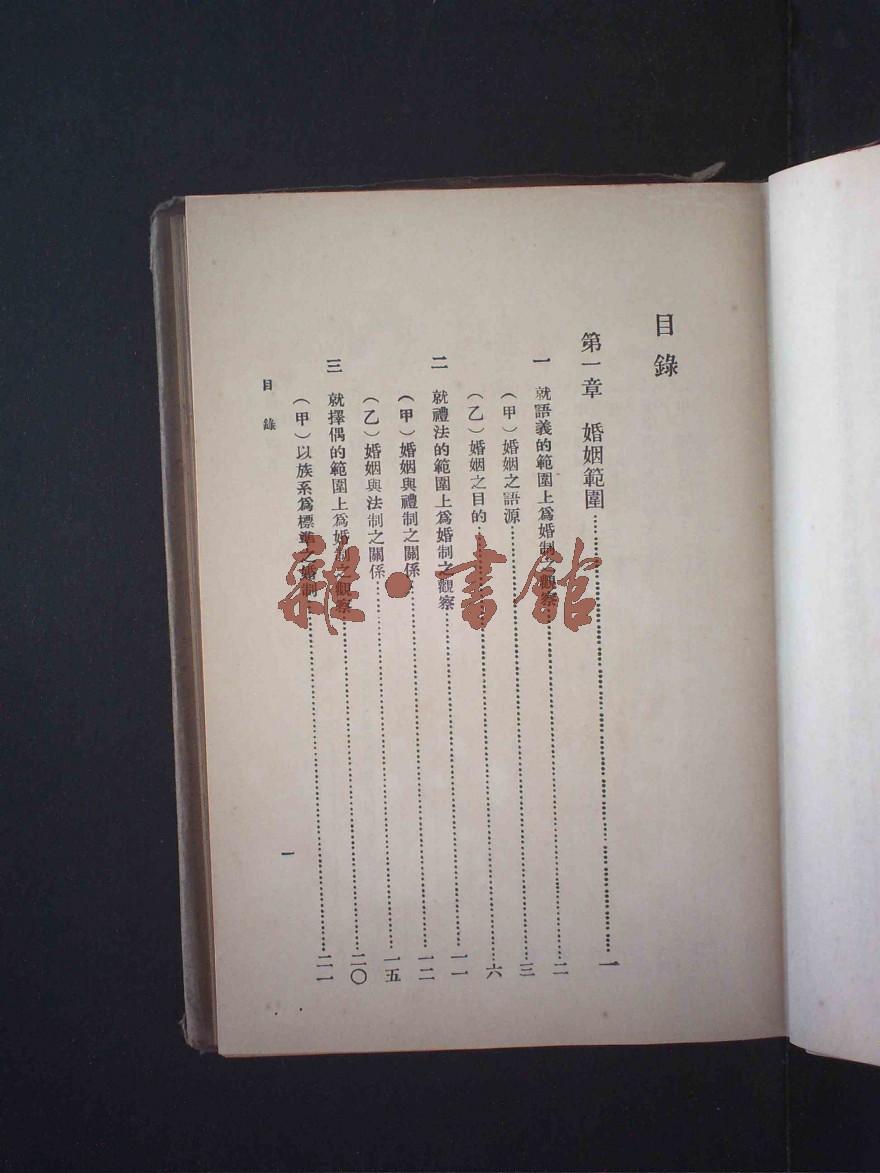 目錄
第一章 婚姻範圍……一
一 就語義的範圍上爲婚制之觀察……二
（甲）婚姻之語源……三
（乙）婚姻之目的……六
二 就禮法的範圍上爲婚制之觀察……一一
（甲）婚姻與禮制之關係……一二
（乙）婚姻與法制之關係……一五
三 就擇偶的範圍上爲婚制之觀察……二〇
（甲）以族系爲標準之婚制……二一
目錄
一
雜·書館